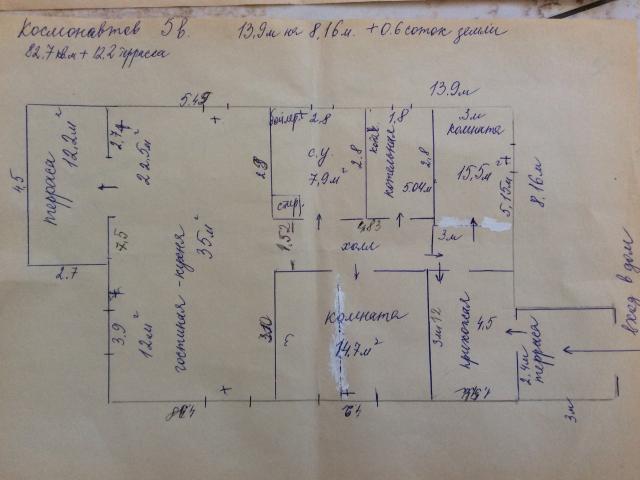 Космонавтов 5в. 13,9м на 8,16м. +0.6 соток земли
82.7 кв.м + 12.2 терраса
13.9м
4,5
терраса
12.2м²
2.7
2.74
22.5м²
7,5
3,9
12м²
гостиная - кухня
35м²
бойлер
2,8
с.у.
7,9м²
2.8
стир.
1,52
1,8
котельная
5.04м²
2,8
3м
комната
15,5м²
5,15м
8,16м
холл
3м
комната
14.7м²
прихожая
4,5
2.4м
терраса
3м
вход в дом